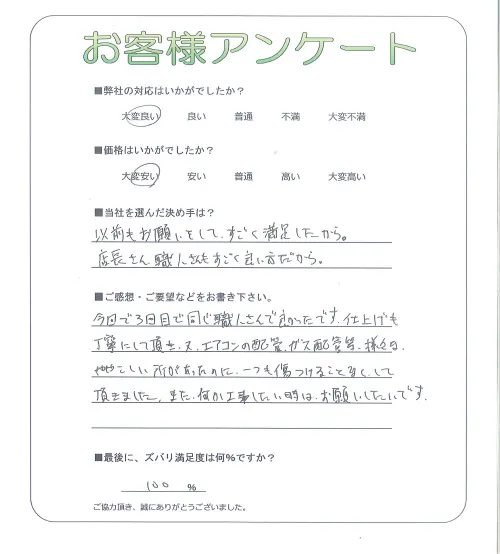 お客様アンケート
■弊社の対応はいかがでしたか?
大変良い 良い 普通 不満 大変不満
■価格はいかがでしたか?
大変安い 安い 普通 高い 大変高い
■当社を選んだ決め手は?
以前もお願いをして、すごく満足したから。
店長さん職人さんもすごく良い方だから。
■ご感想・ご要望などをお書き下さい。
今回で3回目で同じ職人さんで良かったです。仕上げも
丁寧にして頂き、又、エアコンの配管、ガス配管等、様々な、
ややこしい所があったのに、一つも傷つけることなく、して
頂きました。また、何か工事したい時は、お願いしたいです。
■最後に、ズバリ満足度は何%ですか?
100 %
ご協力頂き、誠にありがとうございました。